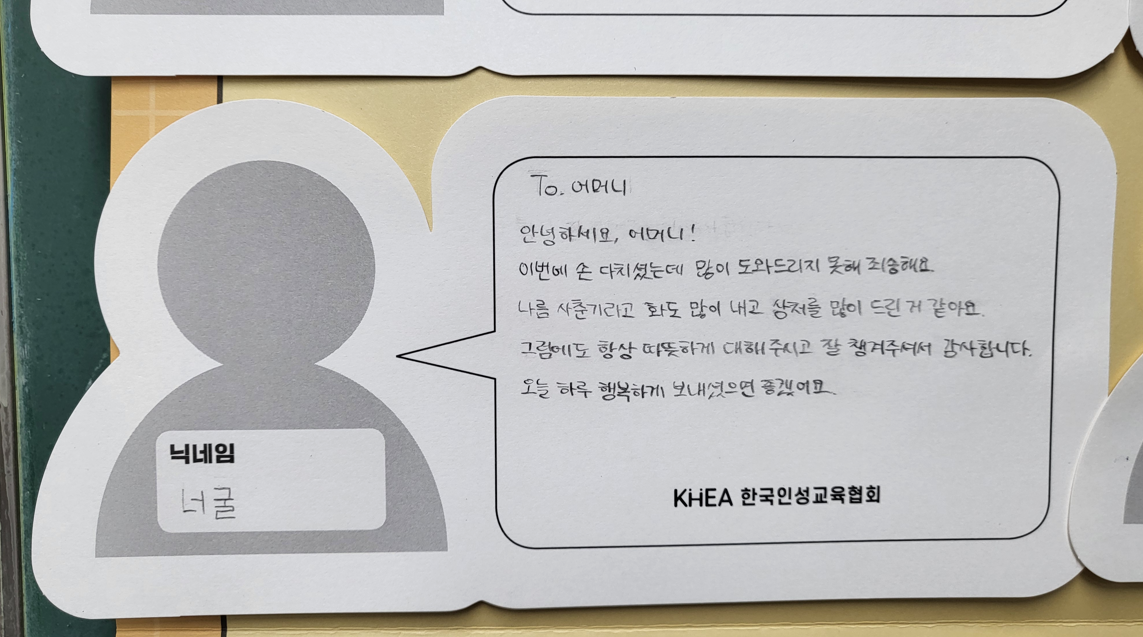 To. 어머니
안녕하세요, 어머니!
이번에 손 다치셨는데 많이 도와드리지 못해 죄송해요.
나름 사춘기라고 화도 많이 내고 상처를 많이 드린 거 같아요.
그럼에도 항상 따뜻하게 대해주시고 잘 챙겨주셔서 감사합니다.
오늘 하루 행복하게 보내셨으면 좋겠어요.
닉네임
너굴
KHEA 한국인성교육협회